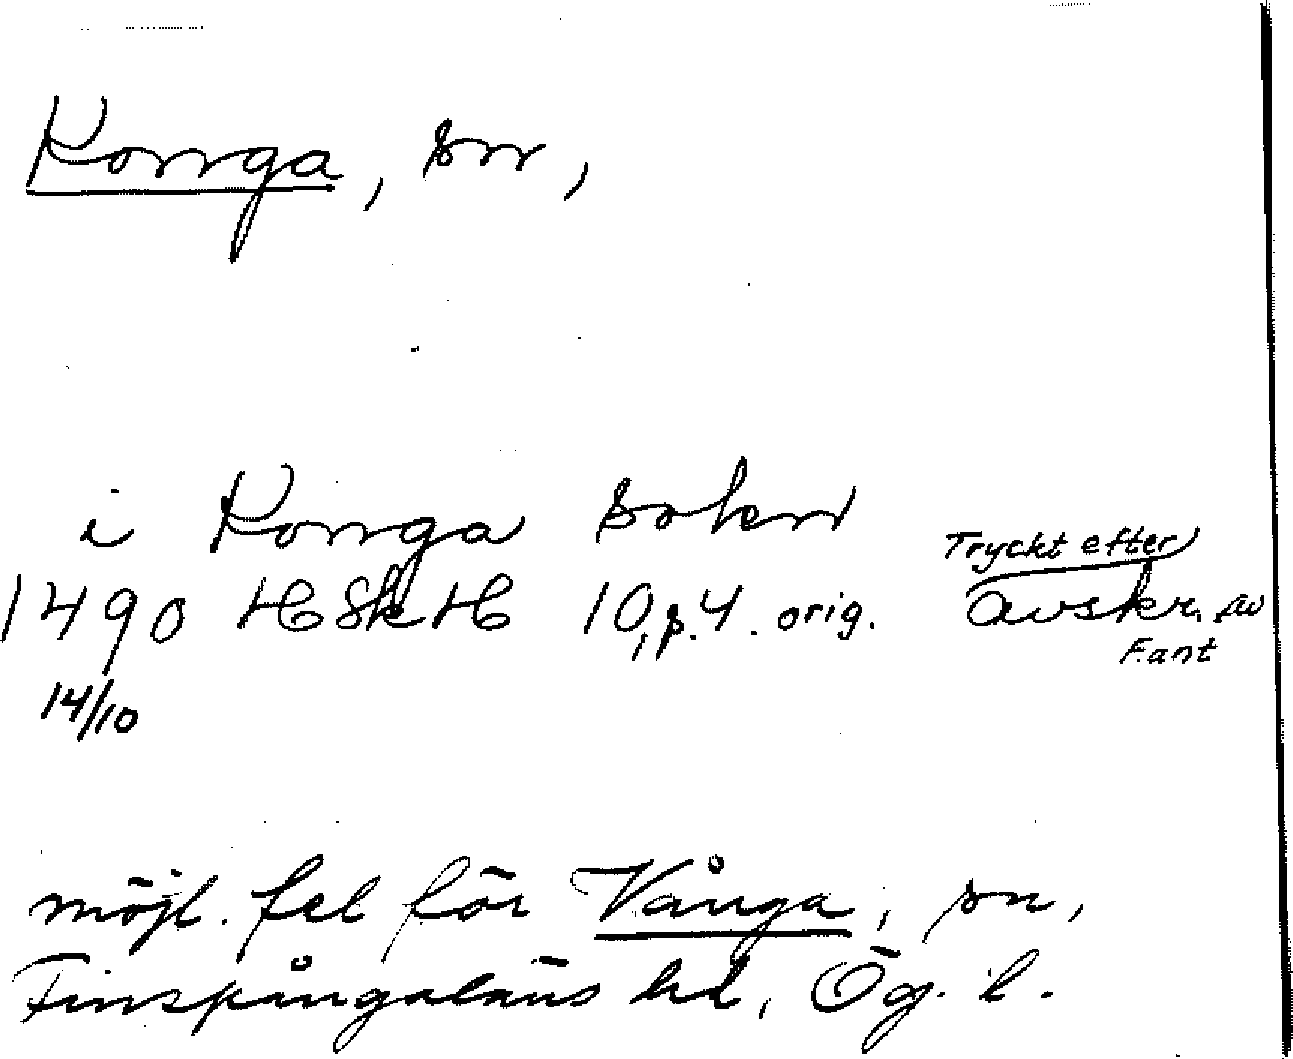 Konga, sn,
i Konga Sokn
Tryckt efter
1490 HSkH 10, p. 4. orig. avskr. av
Fant
14/10
möjl. fel för Vånga, sn,
Finspångaläns hd, Ög. l.